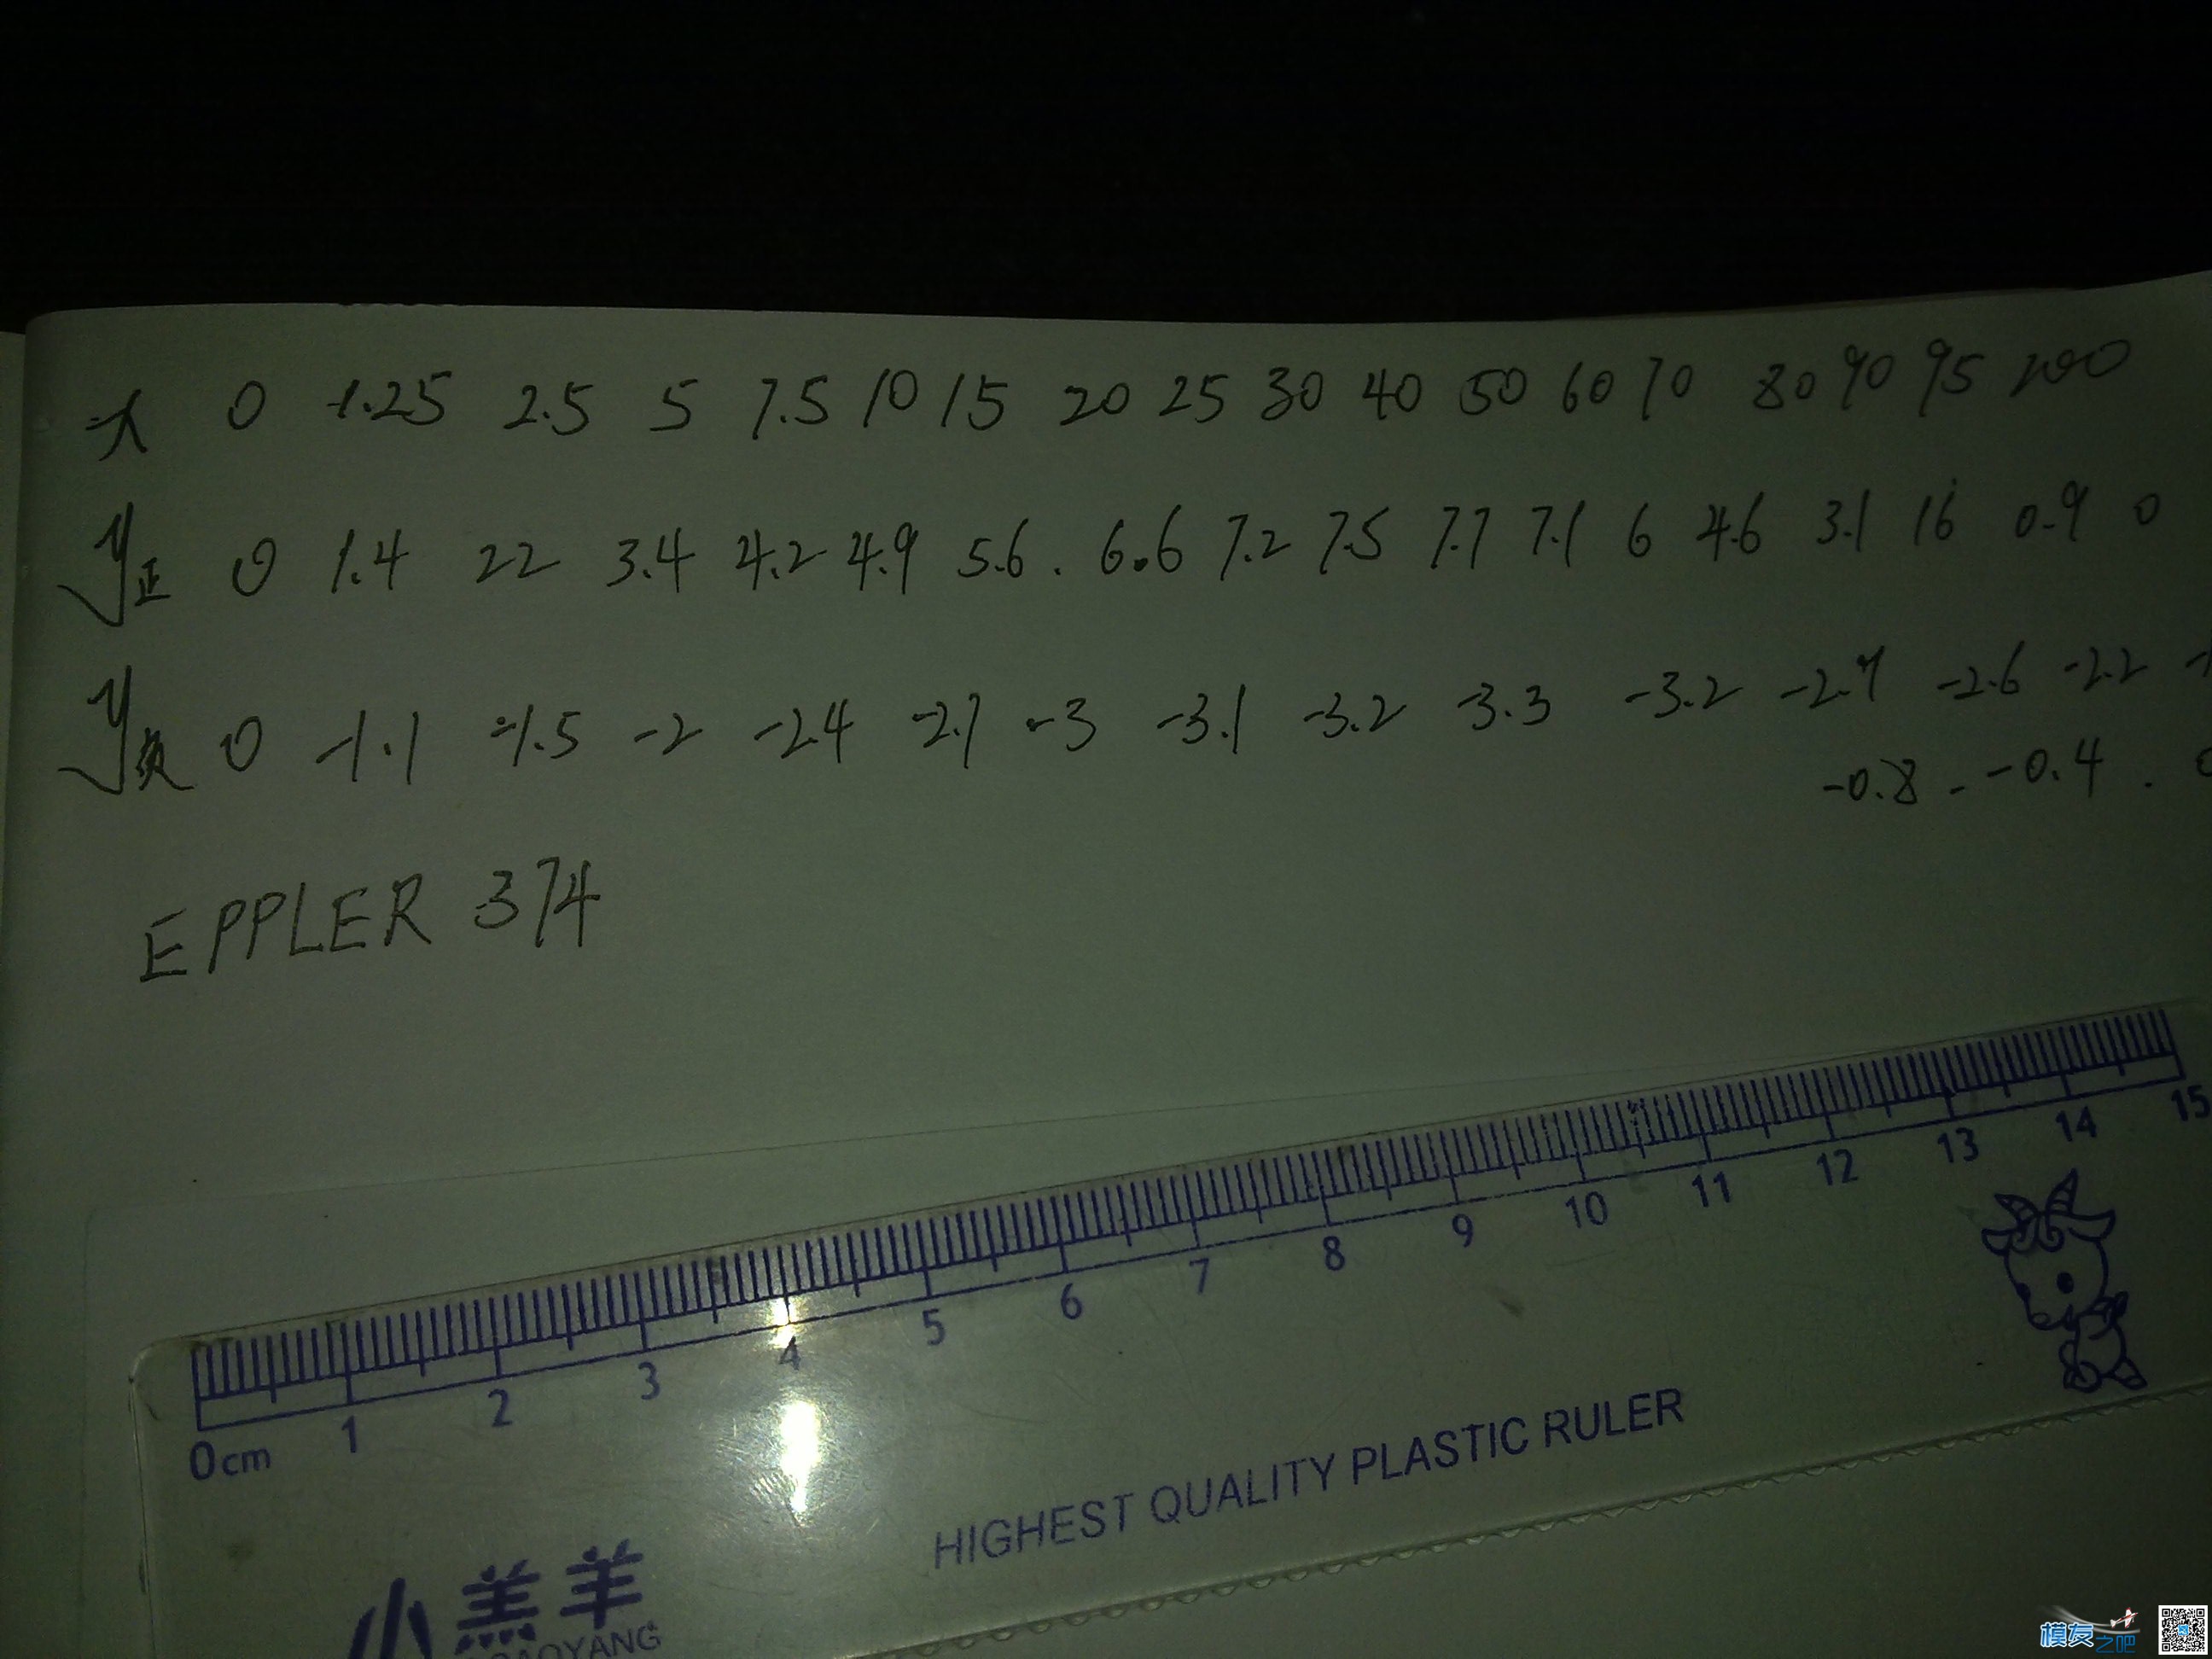 x 0 1.25 2.5 5 7.5 10 15 20 25 30 40 50 60 70 80 90 95 100
y正 0 1.4 22 3.4 4.2 4.9 5.6. 6.6 7.2 7.5 7.7 7.1 6 4.6 3.1 16 0.9 0
y负 0 -1.1 -1.5 -2 -2.4 -2.7 -3 -3.1 -3.2 -3.3 -3.2 -2.9 -2.6 -2.2
-0.8 - -0.4 .
EPPLER 374
0cm 1 2 3 4 5 6 7 8 9 10 11 12 13 14 15
HIGHEST QUALITY PLASTIC RULER
小羔羊
模友之吧